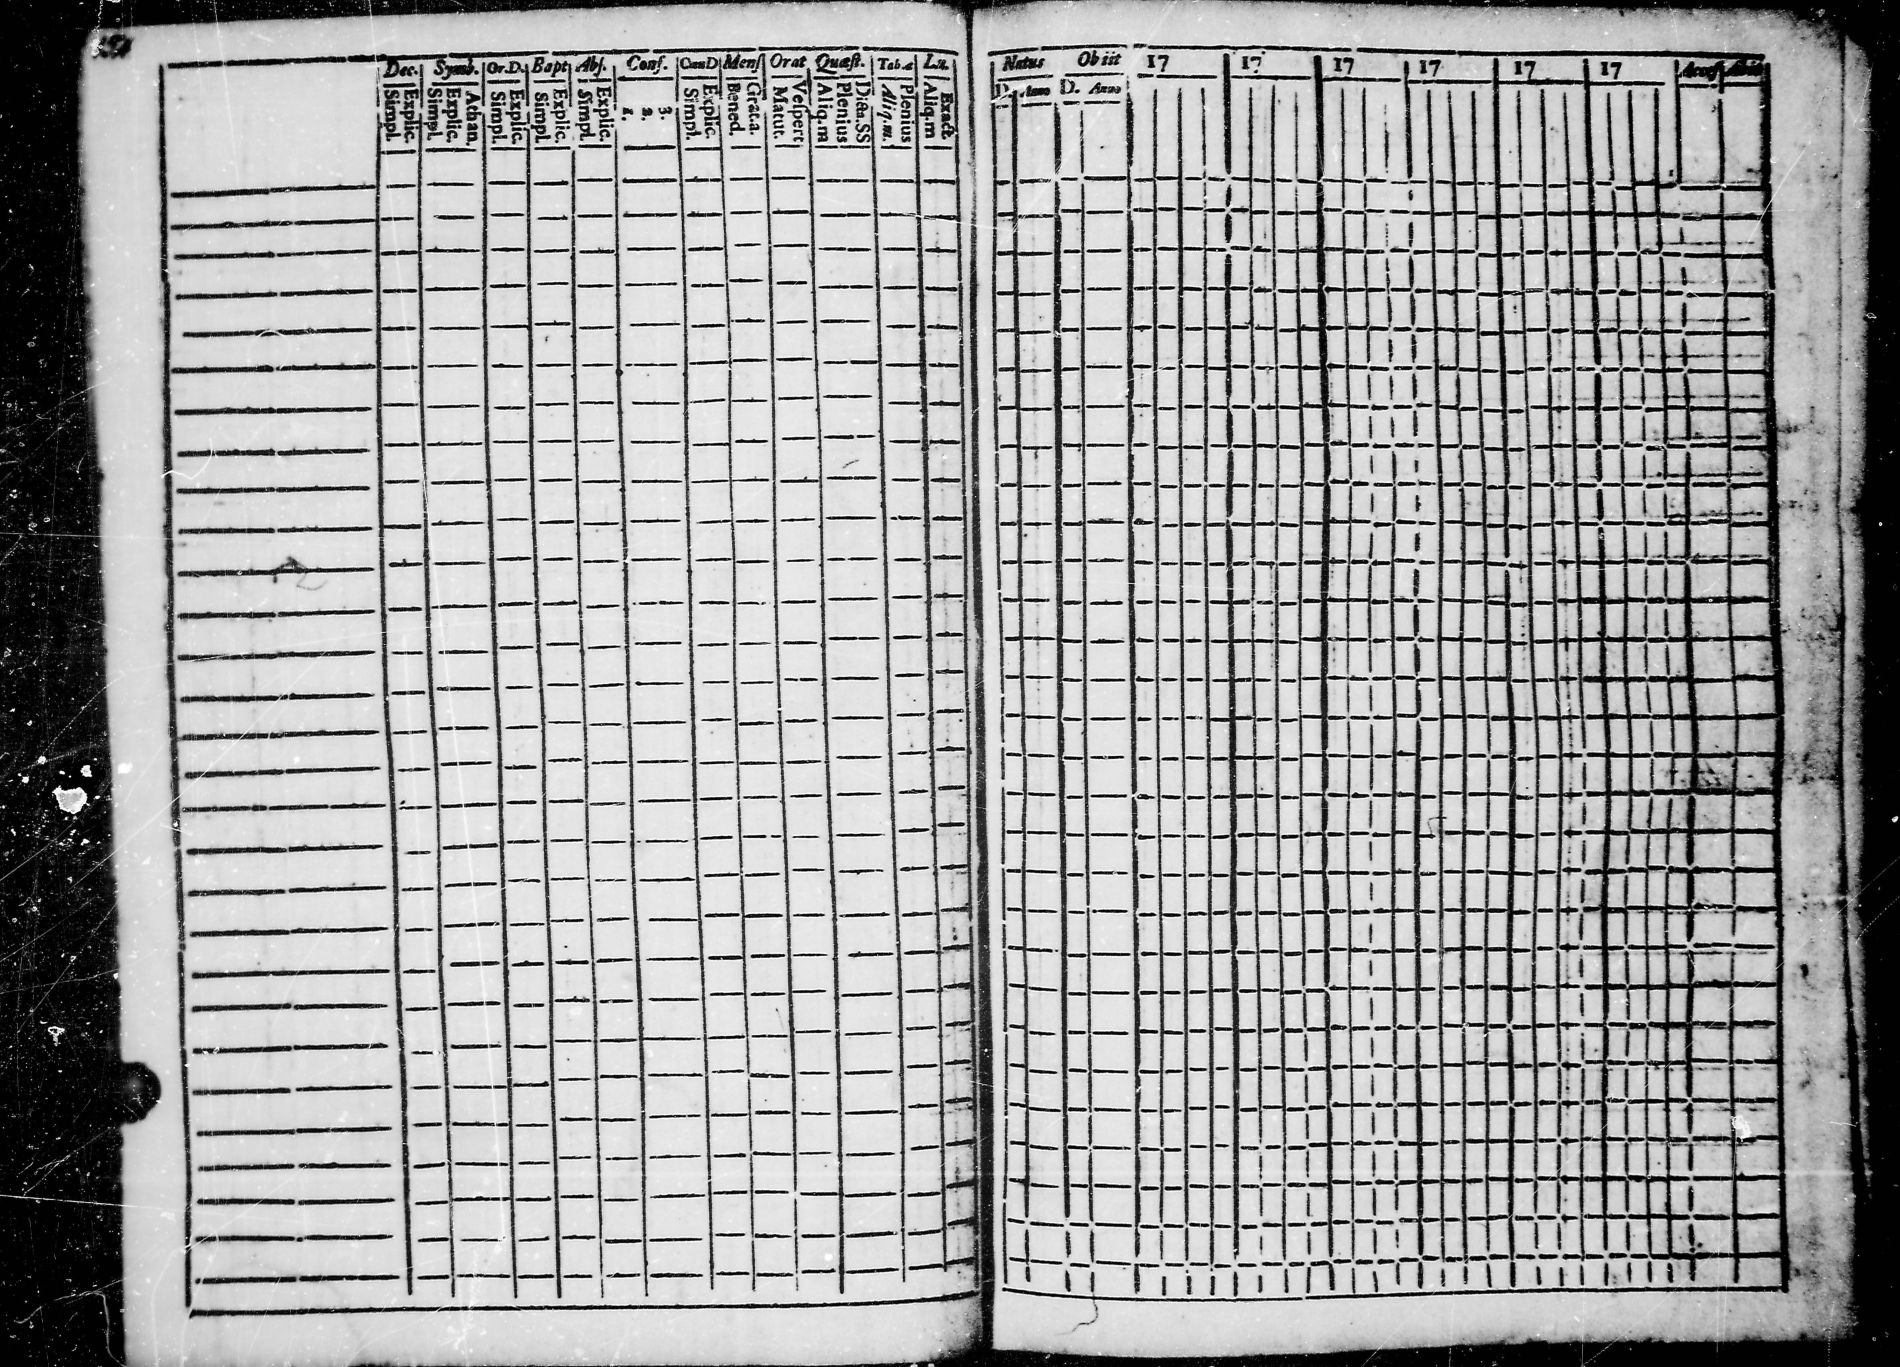 Dec. Symb. Or.D. Bapt Abſ. Conf. CœnD Menſ Orat Quæſt. Tab.æ L.n.
Simpl. Explic. Simpl. Explic. Athan. Simpl. Explic. Simpl. Explic. Simpl. Explic. 1. 2. 3. Simpl. Explic. Bened. Grat.a. Matut. Veſpert Aliq.m Plenius Dicta.SS Aliq.m. Plenius Aliq.m Exacte
Natus Obiit 17 17 17 17 17 17 Acceſ Abiit
D. Anno D. Anno